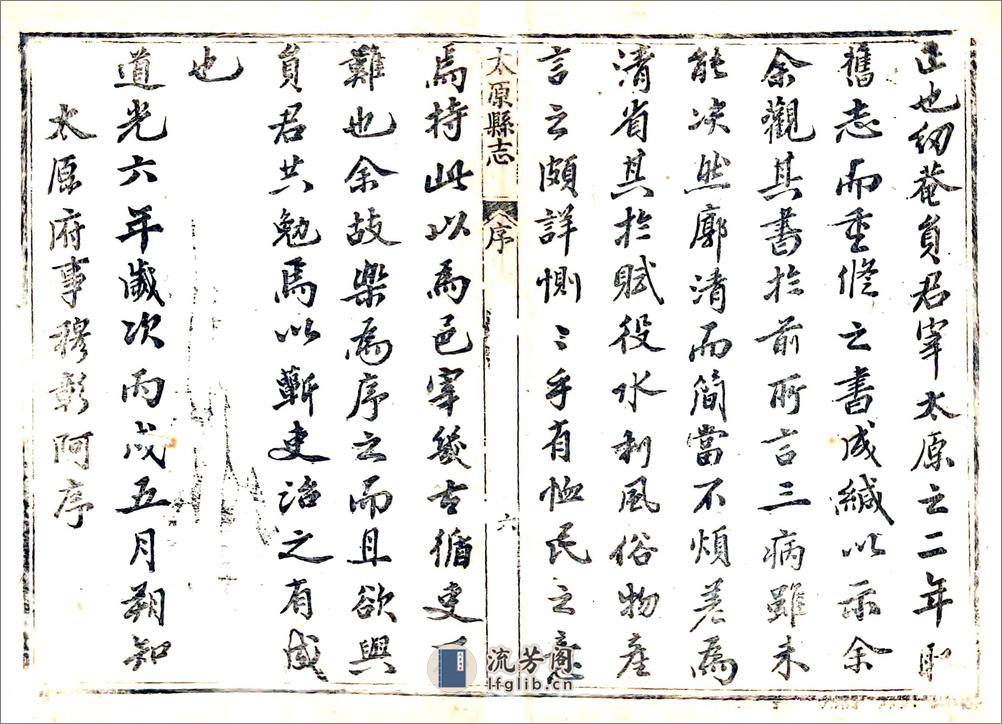 正也幼菴員君宰太原之二年取
舊志而重修之書成緘以示余
余觀其書於前所言三病雖未
能決然廓清而簡當不煩差為
清省其於賦役水利風俗物產
言之頗詳惻〻乎有恤民之意
太原縣志
序
六
焉持此以為邑宰幾古循吏不
難也余故樂為序之而且欲與
員君共勉焉以蘄吏治之有成
也
道光六年歲次丙戌五月朔知
太原府事穆彰阿序
流芳閣
lfglib.cn